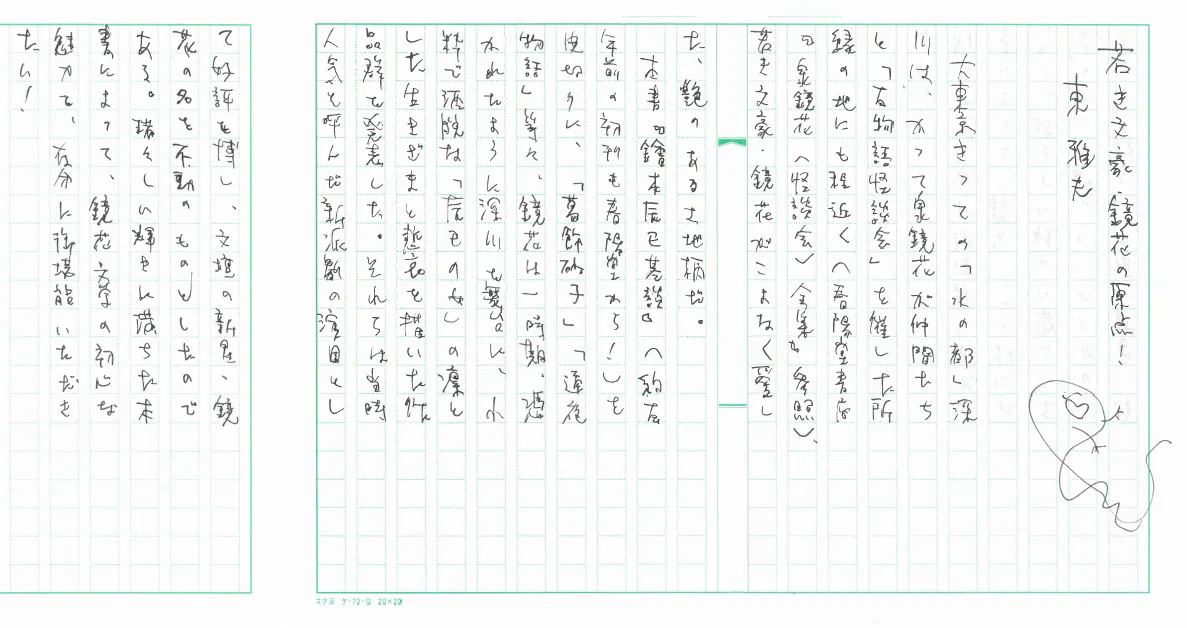 若き文豪・鏡花の原点!
東 雅夫
大東京きっての「水の都」深
川は、かつて泉鏡花が仲間たち
と「百物語怪談会」を催した所
縁の地にも程近く(春陽堂書店
『泉鏡花〈怪談会〉全集』参照)、
若き文豪・鏡花がこよなく愛し
た、艶のある土地柄だ。
本書『繪本辰巳巷談』(約百
年前の初刊も春陽堂から!)を
皮切りに、「葛飾砂子」「通夜
物語」等々、鏡花は一時期、憑
かれたように深川を舞台に、小
粋で洒脱な「辰巳の女」の凜と
した生きざまと悲哀を描いた作
品群を発表した。それらは当時
人気を呼んだ新派劇の演目とし
て好評を博し、文壇の新星、鏡
花の名を不動のものとしたので
ある。瑞々しい輝きに満ちた本
書によって、鏡花文学の初心な
魅力を、存分に御堪能いただき
たい!
コクヨ ケ-70-G 20×20